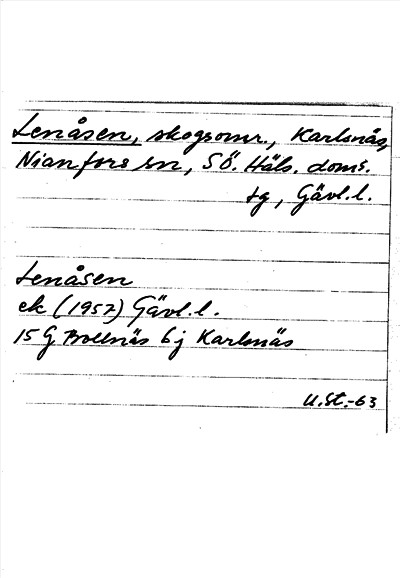 Lenåsen, skogsomr., Karlsnäs,
Nianfors sn, Sö. Häls. doms.
tg, Gävl.l.
Lenåsen
ek (1957) Gävl.l.
15 G Bollnäs 6 j Karlsnäs
U.St.-63